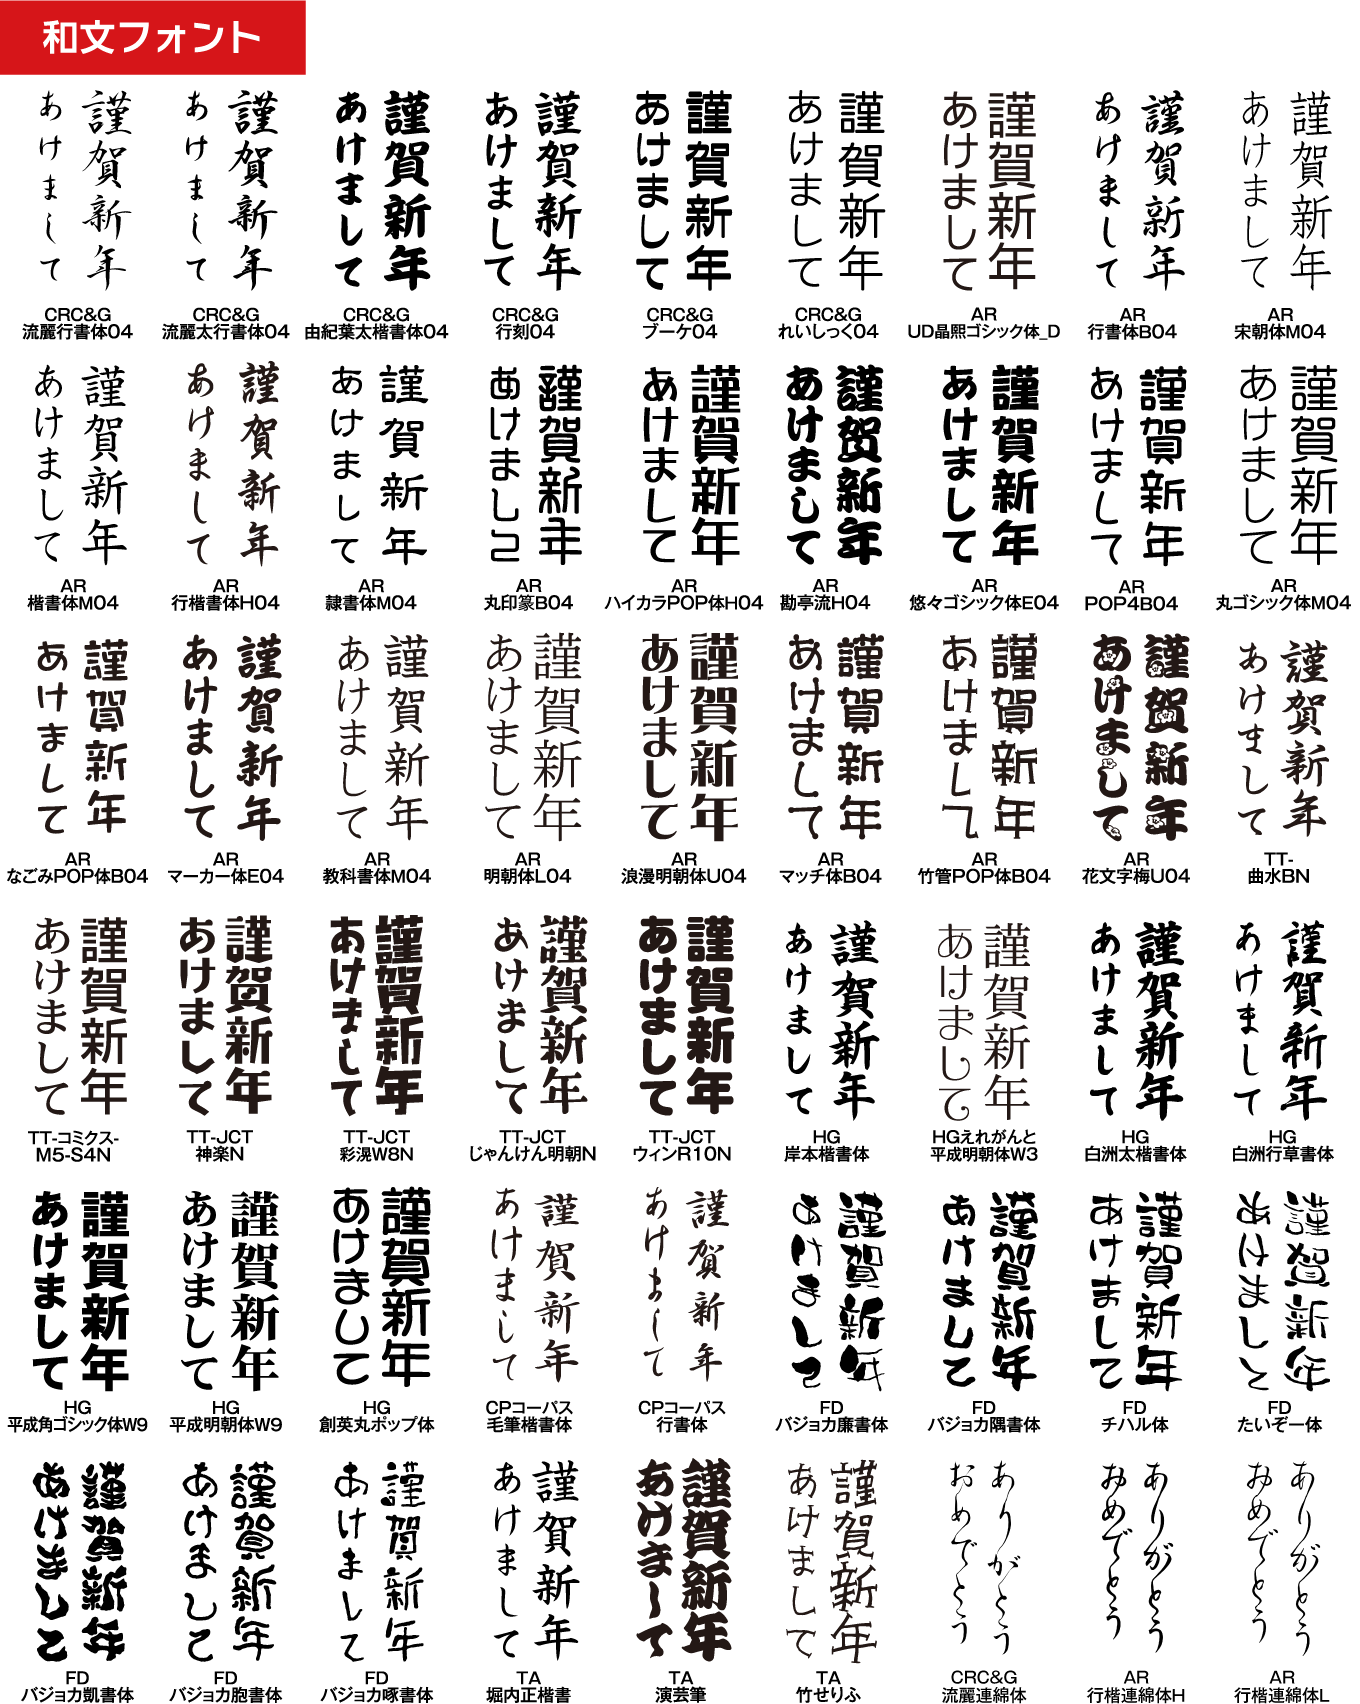 和文フォント
謹賀新年
あけまして
CRC&G
流麗行書体04
謹賀新年
あけまして
CRC&G
流麗太行書体04
謹賀新年
あけまして
CRC&G
由紀葉太楷書体04
謹賀新年
あけまして
CRC&G
行刻04
謹賀新年
あけまして
CRC&G
ブーケ04
謹賀新年
あけまして
CRC&G
れいしっく04
謹賀新年
あけまして
AR
UD晶熙ゴシック体_D
謹賀新年
あけまして
AR
行書体B04
謹賀新年
あけまして
AR
宋朝体M04
謹賀新年
あけまして
AR
楷書体M04
謹賀新年
あけまして
AR
行楷書体H04
謹賀新年
あけまして
AR
隷書体M04
謹賀新年
あけまして
AR
丸印篆B04
謹賀新年
あけまして
AR
ハイカラPOP体H04
謹賀新年
あけまして
AR
勘亭流H04
謹賀新年
あけまして
AR
悠々ゴシック体E04
謹賀新年
あけまして
AR
POP4B04
謹賀新年
あけまして
AR
丸ゴシック体M04
謹賀新年
あけまして
AR
なごみPOP体B04
謹賀新年
あけまして
AR
マーカー体E04
謹賀新年
あけまして
AR
教科書体M04
謹賀新年
あけまして
AR
明朝体L04
謹賀新年
あけまして
AR
浪漫明朝体U04
謹賀新年
あけまして
AR
マッチ体B04
謹賀新年
あけまして
AR
竹管POP体B04
謹賀新年
あけまして
AR
花文字梅U04
謹賀新年
あけまして
TT-
曲水BN
謹賀新年
あけまして
TT-コミクス-
M5-S4N
謹賀新年
あけまして
TT-JCT
神楽N
謹賀新年
あけまして
TT-JCT
彩滉W8N
謹賀新年
あけまして
TT-JCT
じゃんけん明朝N
謹賀新年
あけまして
TT-JCT
ウィンR10N
謹賀新年
あけまして
HG
岸本楷書体
謹賀新年
あけまして
HGえれがんと
平成明朝体W3
謹賀新年
あけまして
HG
白洲太楷書体
謹賀新年
あけまして
HG
白洲行草書体
謹賀新年
あけまして
HG
平成角ゴシック体W9
謹賀新年
あけまして
HG
平成明朝体W9
謹賀新年
あけまして
HG
創英丸ポップ体
謹賀新年
あけまして
CPコーパス
毛筆楷書体
謹賀新年
あけまして
CPコーパス
行書体
謹賀新年
あけまして
FD
バジョカ廉書体
謹賀新年
あけまして
FD
バジョカ隅書体
謹賀新年
あけまして
FD
チハル体
謹賀新年
あけまして
FD
たいぞー体
謹賀新年
あけまして
FD
バジョカ凱書体
謹賀新年
あけまして
FD
バジョカ胞書体
謹賀新年
あけまして
FD
バジョカ啄書体
謹賀新年
あけまして
TA
堀内正楷書
謹賀新年
あけまして
TA
演芸筆
謹賀新年
あけまして
TA
竹せりふ
ありがとう
おめでとう
CRC&G
流麗連綿体
ありがとう
おめでとう
AR
行楷連綿体H
ありがとう
おめでとう
AR
行楷連綿体L